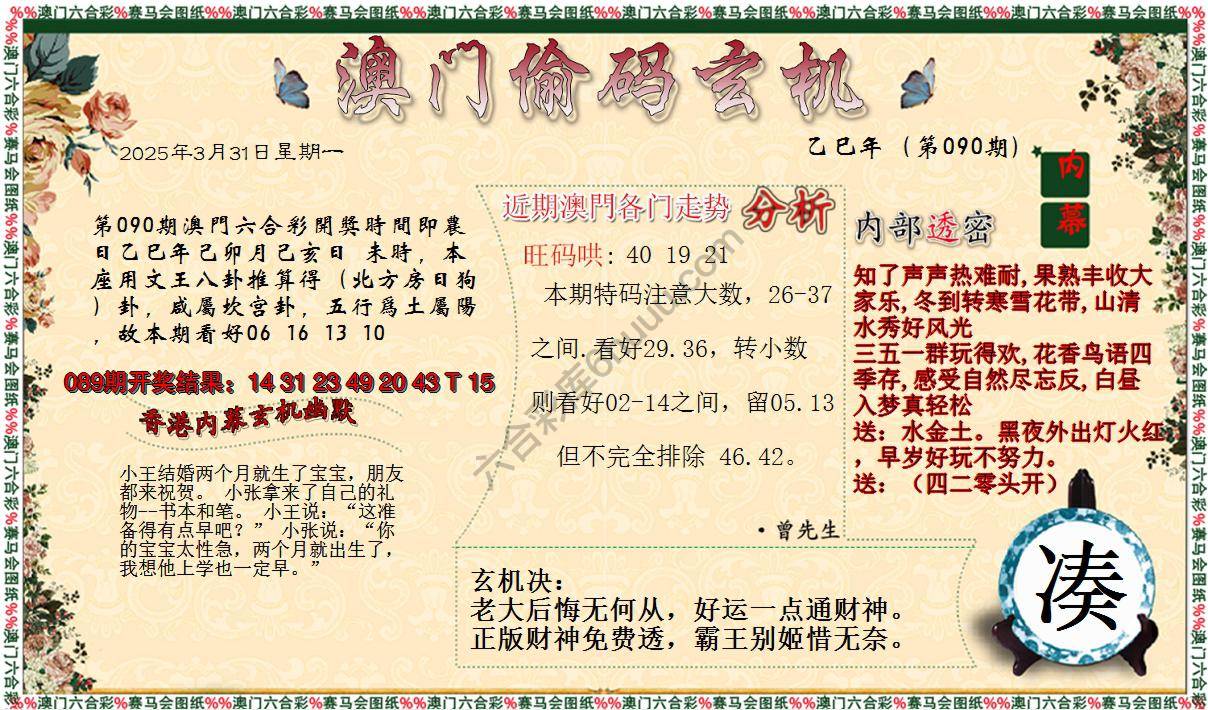 %%澳门六合彩%赛马会图纸%%澳门六合彩%赛马会图纸%%澳门六合彩%赛马会图纸%%澳门六合彩%赛马会图纸%%澳门六合彩%赛马会图纸%%澳门六合彩%赛马会图纸%%
澳门偷码玄机
2025年3月31日星期一
乙巳年（第090期）
内幕
第090期澳門六合彩開獎時間即農
日乙巳年己卯月己亥日 未時，本
座用文王八卦推算得（北方房日狗
）卦，咸屬坎宫卦，五行爲土屬陽
，故本期看好06 16 13 10
089期开奖结果：14 31 23 49 20 43 T 15
香港内幕玄机幽默
小王结婚两个月就生了宝宝，朋友
都来祝贺。 小张拿来了自己的礼
物--书本和笔。 小王说：“这准
备得有点早吧？” 小张说：“你
的宝宝太性急，两个月就出生了，
我想他上学也一定早。”
近期澳門各门走势 分析
旺码哄: 40 19 21
本期特码注意大数，26-37
之间.看好29.36，转小数
则看好02-14之间，留05.13
但不完全排除 46.42。
·曾先生
内部透密
知了声声热难耐,果熟丰收大
家乐,冬到转寒雪花带,山清
水秀好风光
三五一群玩得欢,花香鸟语四
季存,感受自然尽忘反,白昼
入梦真轻松
送：水金土。黑夜外出灯火红
，早岁好玩不努力。
送：（四二零头开）
玄机决：
老大后悔无何从，好运一点通财神。
正版财神免费透，霸王别姬惜无奈。
凑
%%澳门六合彩%赛马会图纸%%澳门六合彩%赛马会图纸%%澳门六合彩%赛马会图纸%%澳门六合彩%赛马会图纸%%澳门六合彩%赛马会图纸%%澳门六合彩%赛马会图纸%%